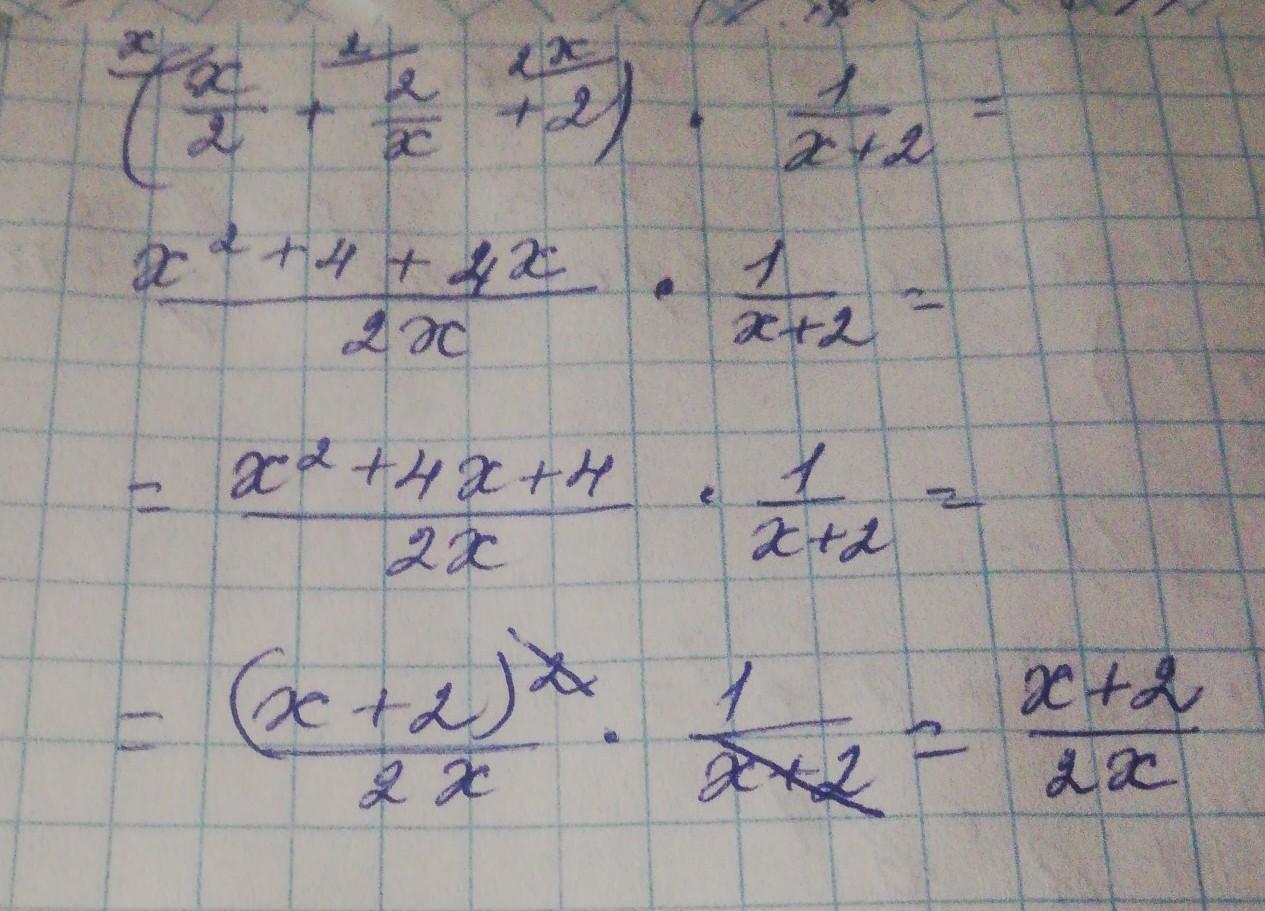 (x/2 + 2/x + 2) · 1/(x+2) =
(x² + 4 + 4x)/(2x) · 1/(x+2) =
= (x² + 4x + 4)/(2x) · 1/(x+2) =
= (x+2)²/(2x) · 1/(x+2) = (x+2)/(2x)